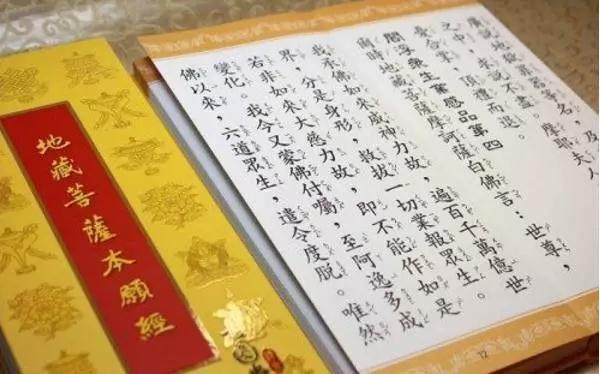 地藏菩薩本願經
說地獄罪器等名，及
之中，求說不盡。摩耶夫人
憂合掌，頂禮而退。
閻浮眾生業感品第四
爾時地藏菩薩摩訶薩白佛言：世尊，
我承佛如來威神力故，遍百千萬億世
界，分是身形，救拔一切業報眾生。
若非如來大慈力故，即不能作如是
變化。我今又蒙佛付囑，至阿逸多成
佛以來，六道眾生，遣令度脫。唯然
12